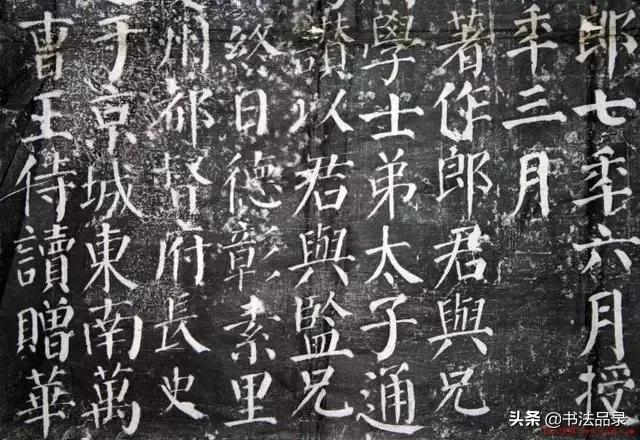 郎七年六月授
年三月
著作郎君與兄
學士弟太子通
讃以君與監兄
終日德彰素里
州都督府長史
于京城東南萬
曹王侍讀贈華
头条 @书法品录